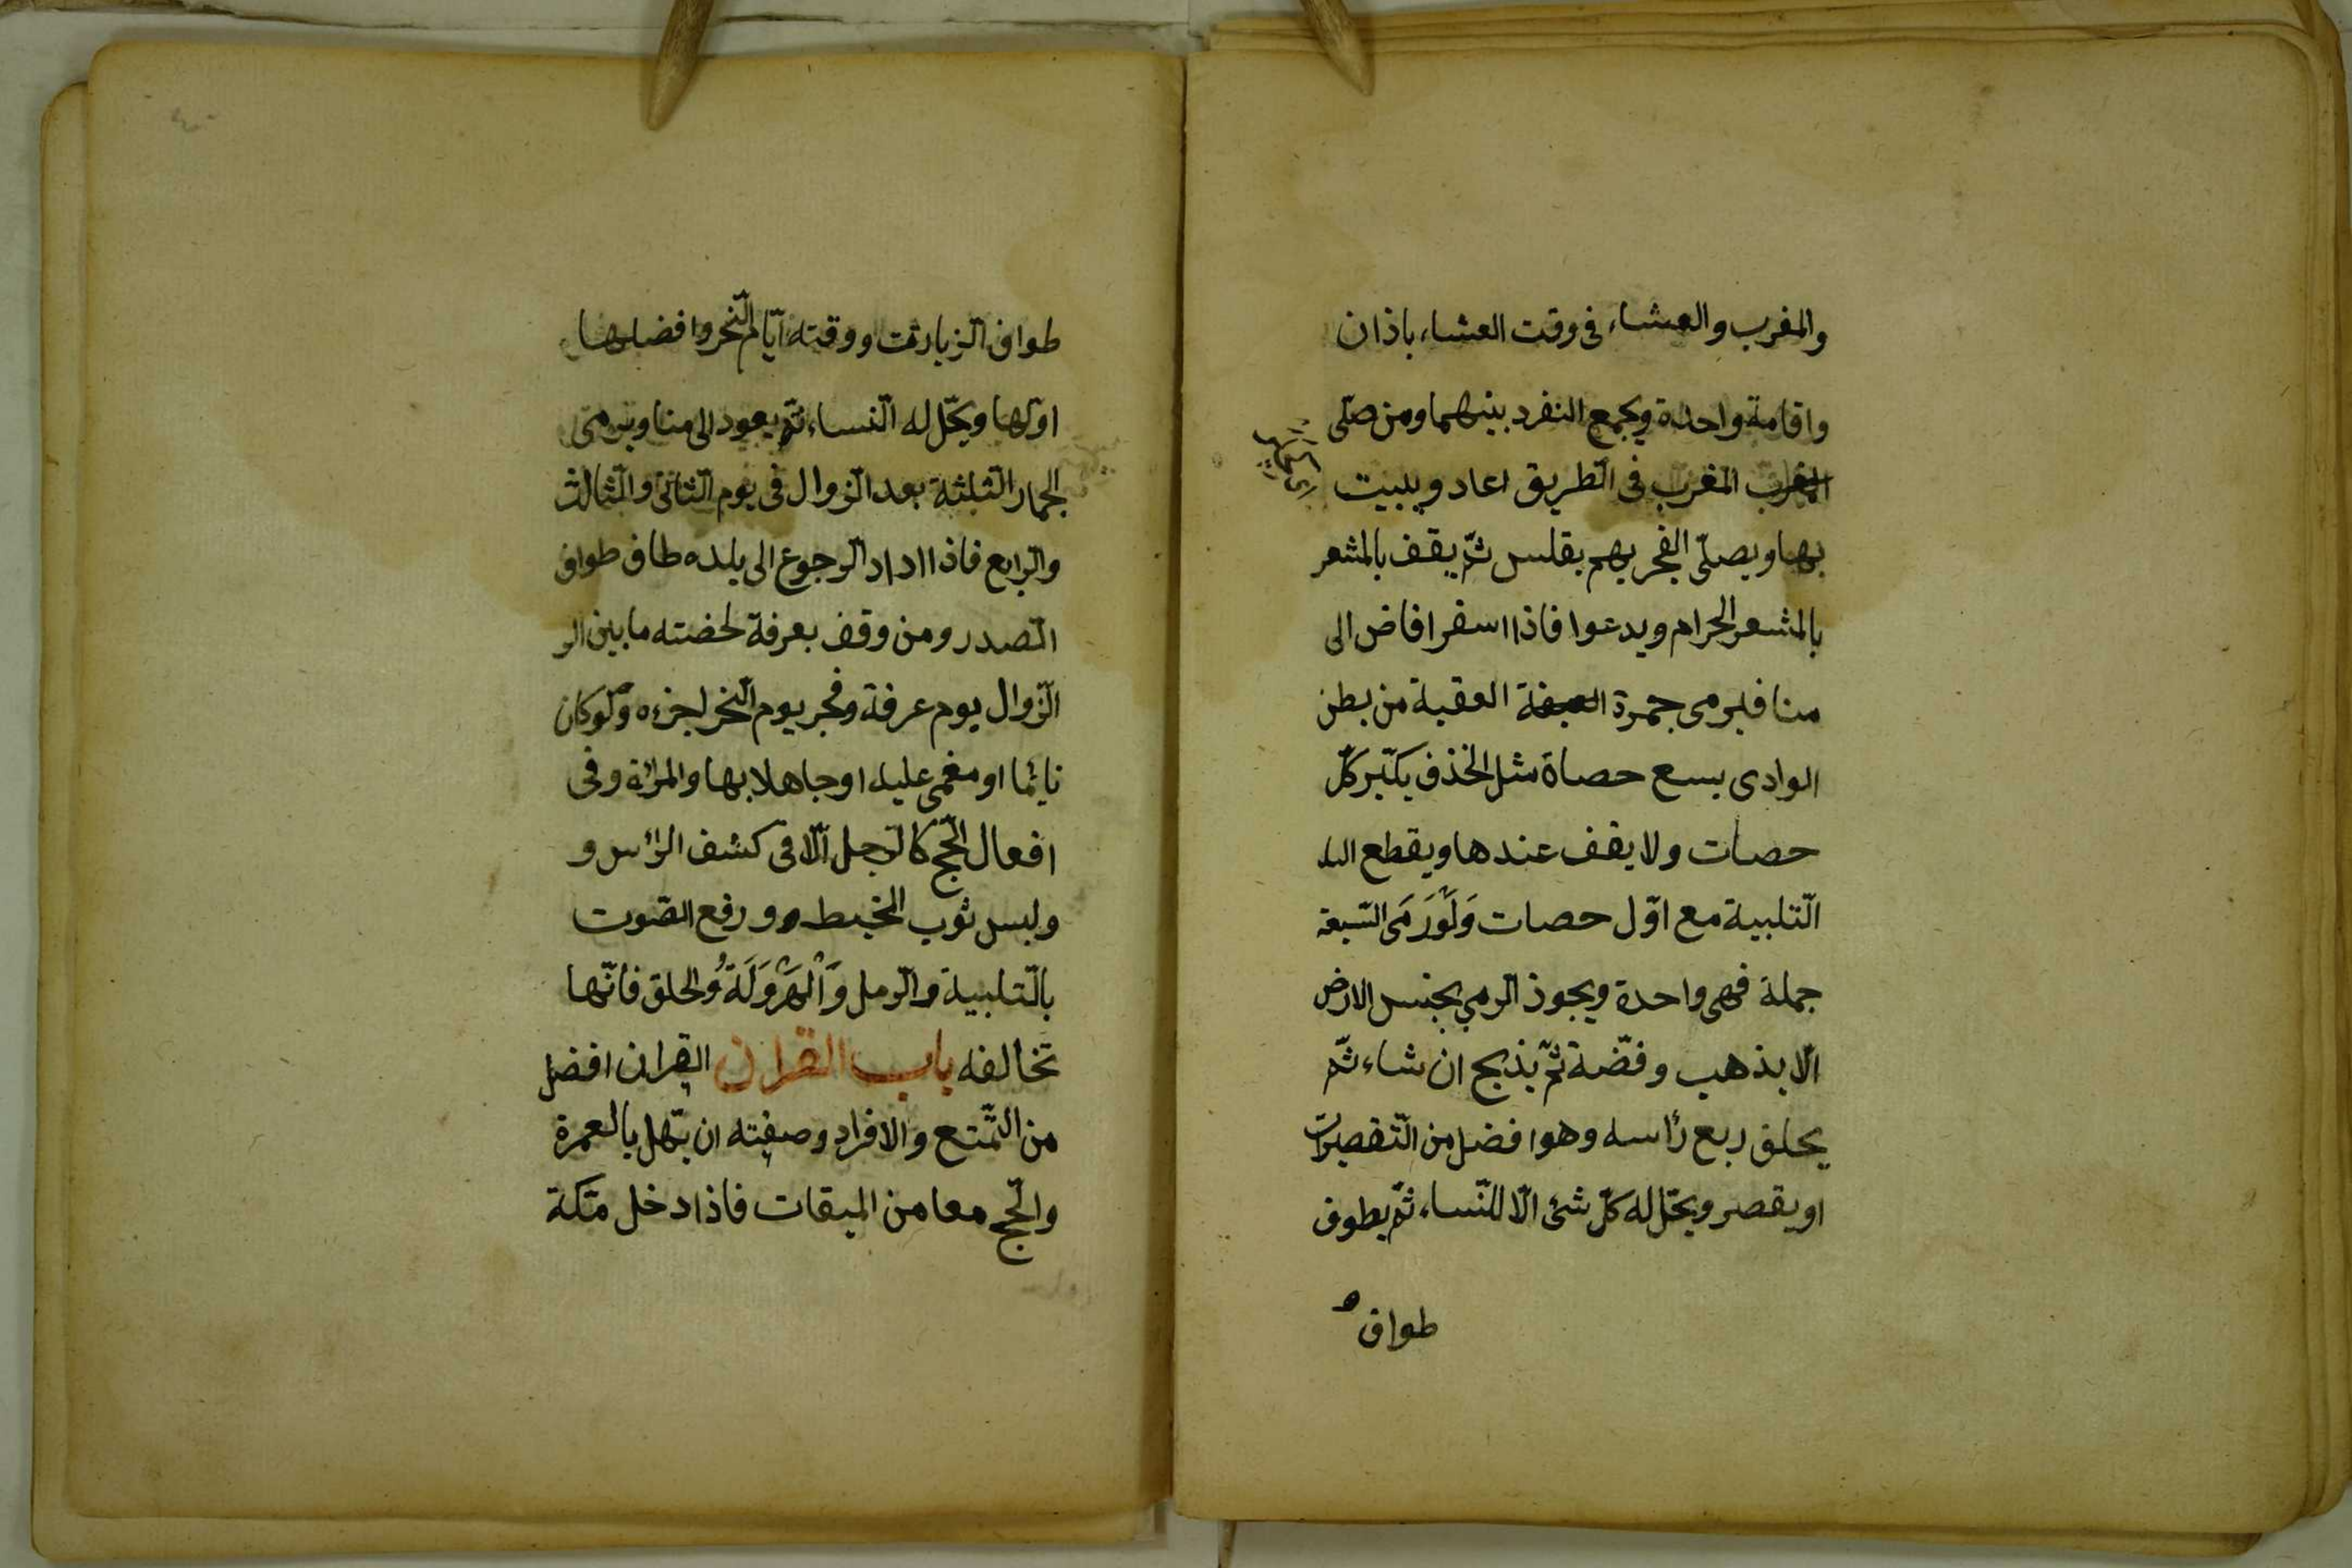 والمغرب والعشاء فى وقت العشاء باذان
واقامة واحدة ويجمع المنفرد بينهما ومن صلى
المغرب فى الطريق اعاد ويبيت
بها ويصلّى الفجر بهم بغلس ثمّ يقف بالمشعر
بالمشعر الحرام ويدعوا فاذا اسفر افاض الى
منا فيرمى جمرة العقبة من بطن
الوادى بسع حصاة مثل الخذف يكبّر كلّ
حصات ولا يقف عندها ويقطع
التّلبية مع اوّل حصات وَلَوْرَمَى السّبعة
جملة فهى واحدة ويجوذ الرمي بجنس الارض
الّا بذهب وفضّة ثمّ يذبح ان شاء ثمّ
يحلق ربع رأسه وهو افضل من التّقصيرات
او يقصر ويحّل له كلّ شئ الّا للنّساء ثمّ يطوف
طواف
طواف الزيارت ووقته ايّام النّحر وافضلها
اوّلها ويحّل له النّساء ثمّ يعود الى منا ويرمى
الجمار الثلثة بعد الزوال فى يوم الثّانى والثّالث
والرّابع فاذا اداد الرجوع الى بلده طاف طواف
الصدر ومن وقف بعرفة لحضته ما بين الر
الزّوال يوم عرفة وفجر يوم النّحر اجزءه ولوكان
نايئما او مغمى عليه او جاهلا بها والمرائة وفى
افعال الحّج كالرّجل الّا فى كشف الرائس و
ولبس ثوب المخيط و ورفع الصّوت
بالتّلبية والرّمل وَالْهَرْوَلَةُ والحلق فانّها
تخالفه باب القران القران افضل
من التّمتع والافراد وصفته ان يّهل بالعمرة
والحّج معا من الميقات فاذا دخل مّكة